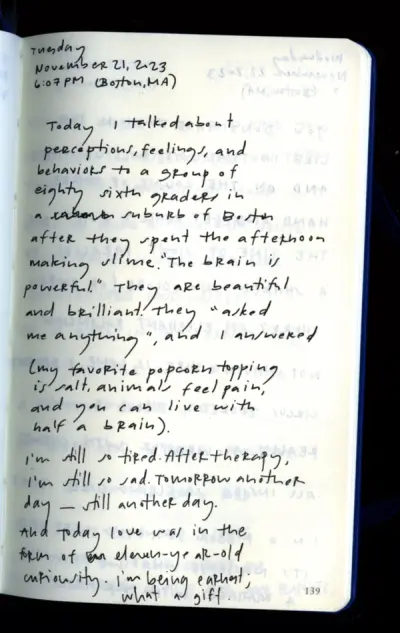 Tuesday
November 21, 2023
6:07 PM (Boston, MA)
Today I talked about
perceptions, feelings, and
behaviors to a group of
eighty sixth graders in
a suburb of Boston
after they spent the afternoon
making slime. "The brain is
powerful." They are beautiful
and brilliant. They "asked
me anything", and I answered
(my favorite popcorn topping
is salt, animals feel pain,
and you can live with
half a brain).
I'm still so tired. After therapy,
I'm still so sad. Tomorrow another
day — still another day.
And today love was in the
form of an eleven-year-old
curiousity. I'm being earnest,
what a gift.
139